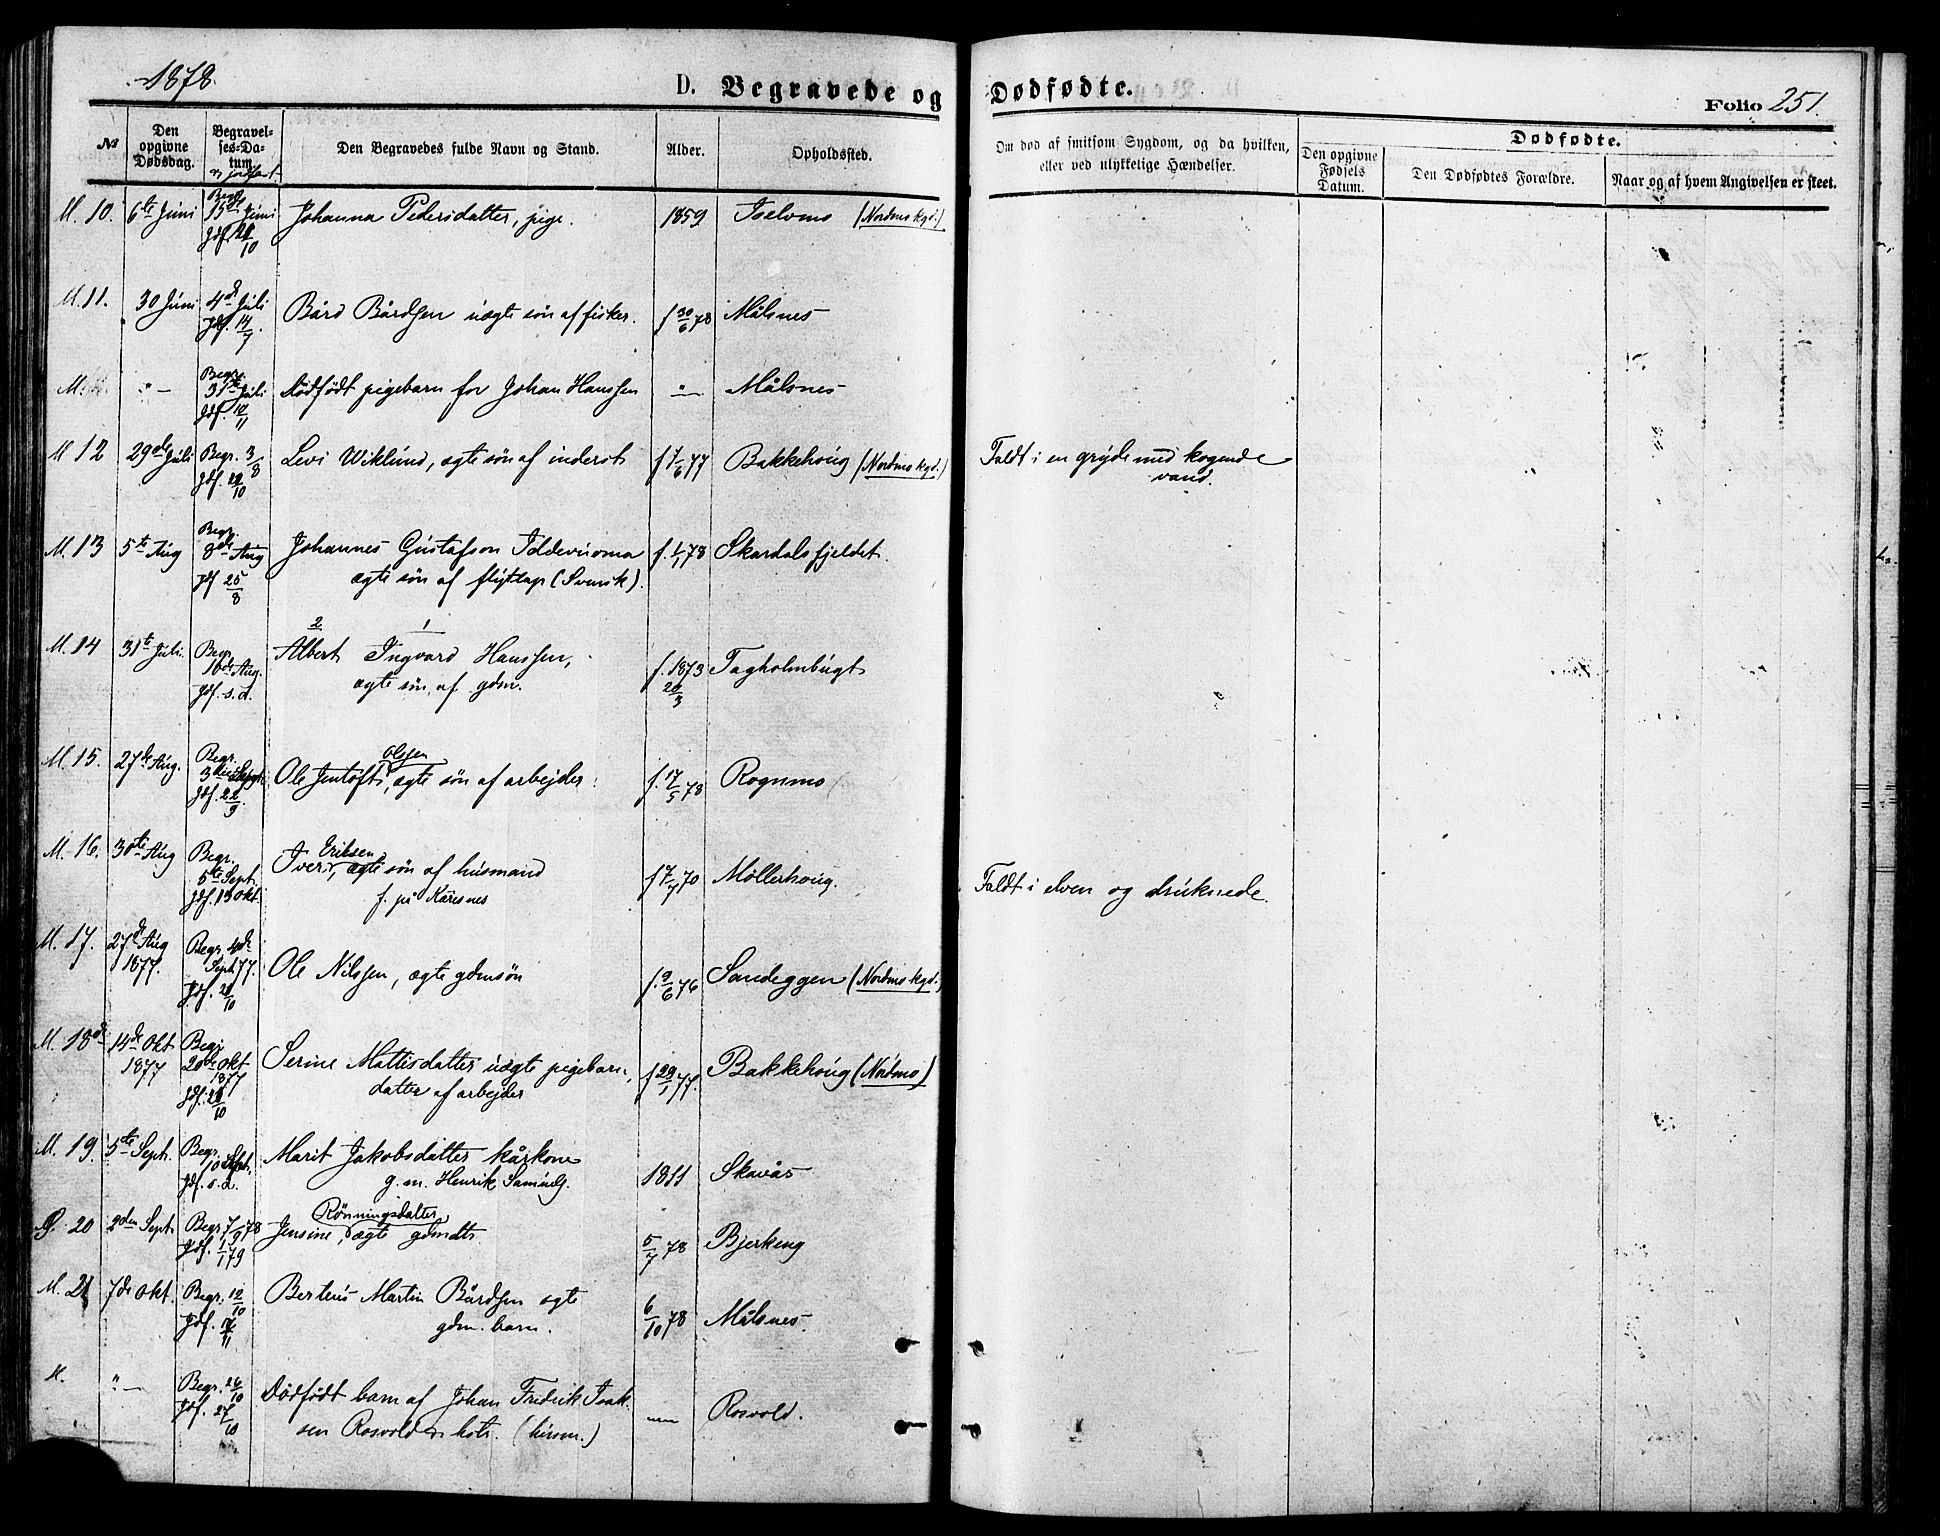 1878.
D. Begravede og Dødfødte.
Folio 251.
No
Den opgivne Dødsdag.
Begravelses-Datum. og jordfæst.
Den Begravedes fulde Navn og Stand.
Alder.
Opholdssted.
Om død af smitsom Sygdom, og da hvilken, eller ved ulykkelige Hændelser.
Dødfødte.
Den opgivne Fødsels Datum.
Den Dødfødtes Forældre.
Naar og af hvem Angivelsen er skeet.
M. 10. 6te Juni Begr. 15de Juni Johanna Pedersdatter, pige. 1859 Iselvmo (Nordmo kgd.)
M. 11. 30 Juni 4de Juli Bård Bårdsen uægte søn af fisker. f 30/6 78 Målsnes
jdf. 14/7
M. " — Begr. 31te Juli Dødfødt pigebarn for Johan Hanssen " — Målsnes
jdf. 10/11
M 12 29de Juli Begr. 3/8 Levi Wiklund, ægte søn af inderst f 1/6 77 Bakkehoug (Nordmo kgd.) Faldt i en gryde med kogende
vand.
M. 13 5te Aug Begr. 8de Aug Johannes Gustafson f. 1/1 78 Skardalsfjeldet.
jdf 25/8 ægte søn af flytlap (Svensk).
2 1
M. 14 31te Juli. Begr. 10de Aug. Albert Ingvard Hanssen, f. 1873 Tagholmbugt
jdf. s. d. ægte søn af gdm. 20/3
Olsen
M. 15. 27de Aug. Begr. 3die Sept. Ole Jentoft, ægte søn af arbejder. f. 17/5 78 Rognmo
jdf. 22/9
Eriksen
M. 16. 30te Aug Begr. 5te Sept. Iver, ægte søn af husmand f 7/7 70 Møllerhoug. Faldt i elven og druknede.
jdf. 13 Okt. f. på Kåresnes
M. 17. 27de Aug 1877. Begr. 4de Sept 77. Ole Nilssen, ægte gdmsøn f. 9/6 76 Sandeggen (Nordmo kgd.)
M. 18de 14de Okt 1877 Begr. 20de Okt 1877 Serine Mattisdatter uægte pigebarn, f 29/1 77. Bakkehoug (Nordmo)
datter af arbejder
M. 19. 5te Sept. Begr. 10 Sept. Marit Jakobsdatter kårkone 1811 Skavås
jdf. s. d. g. m. Henrik
Rönningsdatter
20 2den Sept. Begr. 7/9 78 Jensine, ægte gdmdtr 5/7 78 Bjerkeng
jdf. 1/1 79
M. 21 7de Okt. Begr. 12/10 Berteus Martin Bårdsen ægte 6/10 78 Målsnes
gdm. barn.
M. " — Begr. 26/10 Dödfödt barn af Johan Fredrik Isak- — Rosvold.
jdf. 27/10 sen Rosvold (husm.)